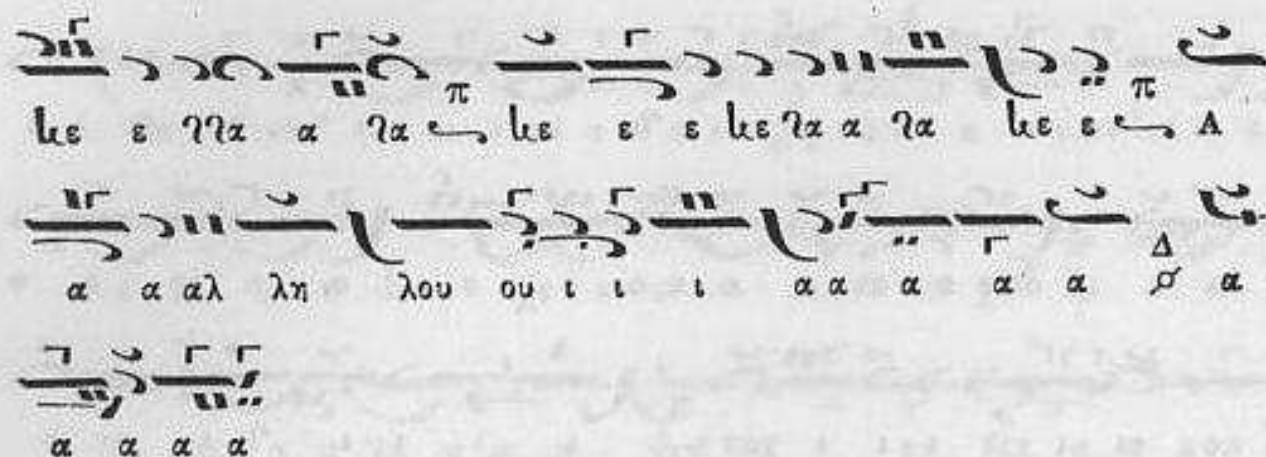 π π
κε ε λλα α λα κε ε ε κε λα α λα κε ε Α
α α αλ λη λου ου ι ι ι α α α α α Δ α
α α α α